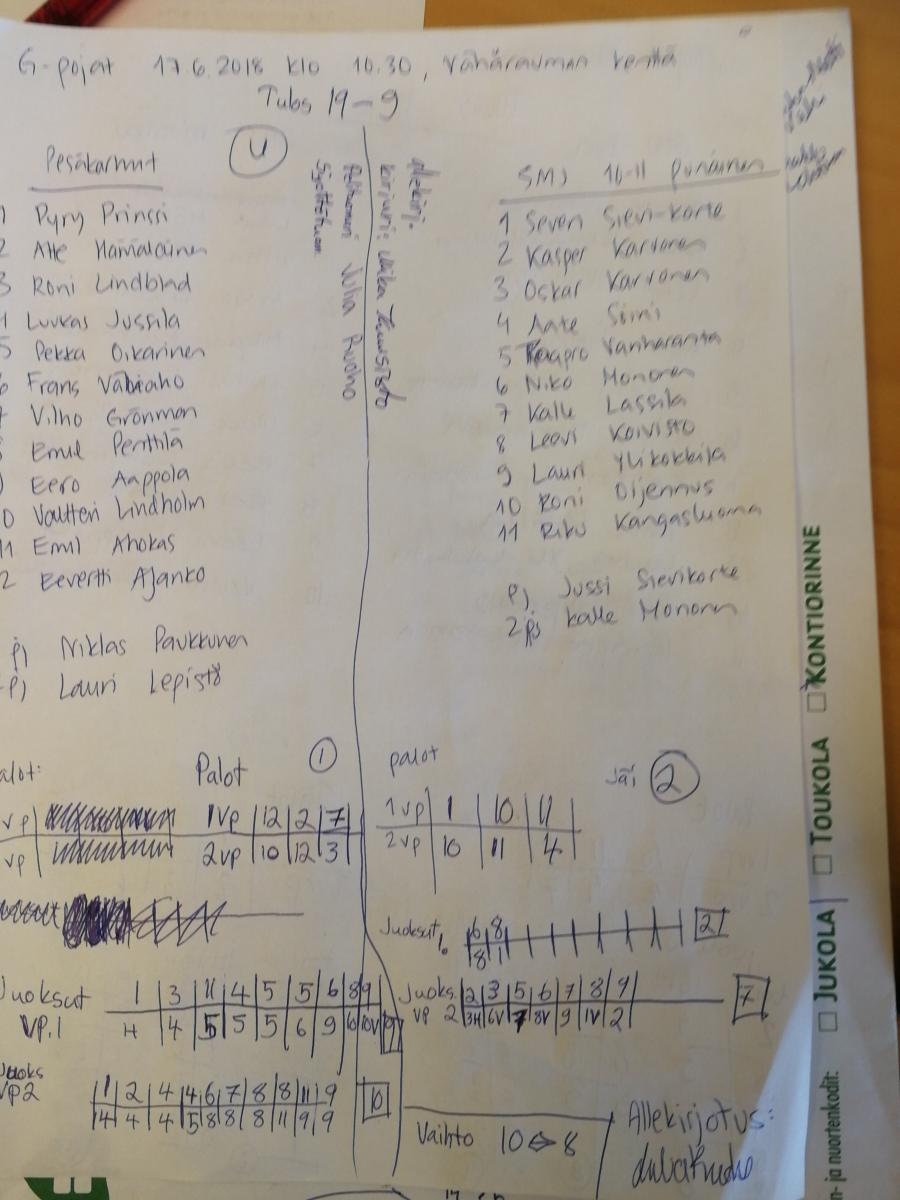 G-pojat 17.6.2018 klo 10.30, Vähärauman kenttä
Tubs 19-9
Pesäkarhut
U
1 Pyry Prinssi
2 Atte Hämäläinen
3 Roni Lindblad
Luukas Jussila
5 Pekka Oikarinen
6 Frans Vähiaho
7 Vilho Grönman
Emil Penttilä
Eero Aappola
10 Valtteri Lindholm
11 Emil Ahokas
2 Eevertti Ajanko
pj Niklas Paukkunen
pj Lauri Lepistö
allekirj.
kirjuri: Miika
Julia Ruoho
SMJ 10-11 punainen
1 Seven Sievi-Korte
2 Kasper Karvonen
3 Oskar Karvonen
4 Aate Simi
5 Kaapro Vanharanta
6 Niko Mononen
7 Kalle Lassila
8 Leevi Koivisto
9 Lauri Ylikokkila
10 Roni Oijennus
11 Riku Kangasluoma
pj Jussi Sievikorte
2pj Kalle Mononen
alot:
vp
vp
Palot 1
1vp 12 2 7
2vp 10 12 3
palot Jäi 2
1vp 1 10 11
2vp 10 11 4
Juoksut 1. 6 8 2
8 1
Juoksut 1 3 11 4 5 5 6 8 9
VP.1 4 5 5 5 6 9 10 9
Juoks. 2 3 5 6 7 8 9 7
VP 2 3H 6V 7 8V 9 1V 2
Juoks
VP2
1 2 4 4 6 7 8 8 11 9 10
4 4 4 5 8 8 8 11 9 9
Vaihto 10 ⇔ 8
Allekirjotus:
n- ja nuortenkodit: ☐ JUKOLA ☐ TOUKOLA ☐ KONTIORINNE